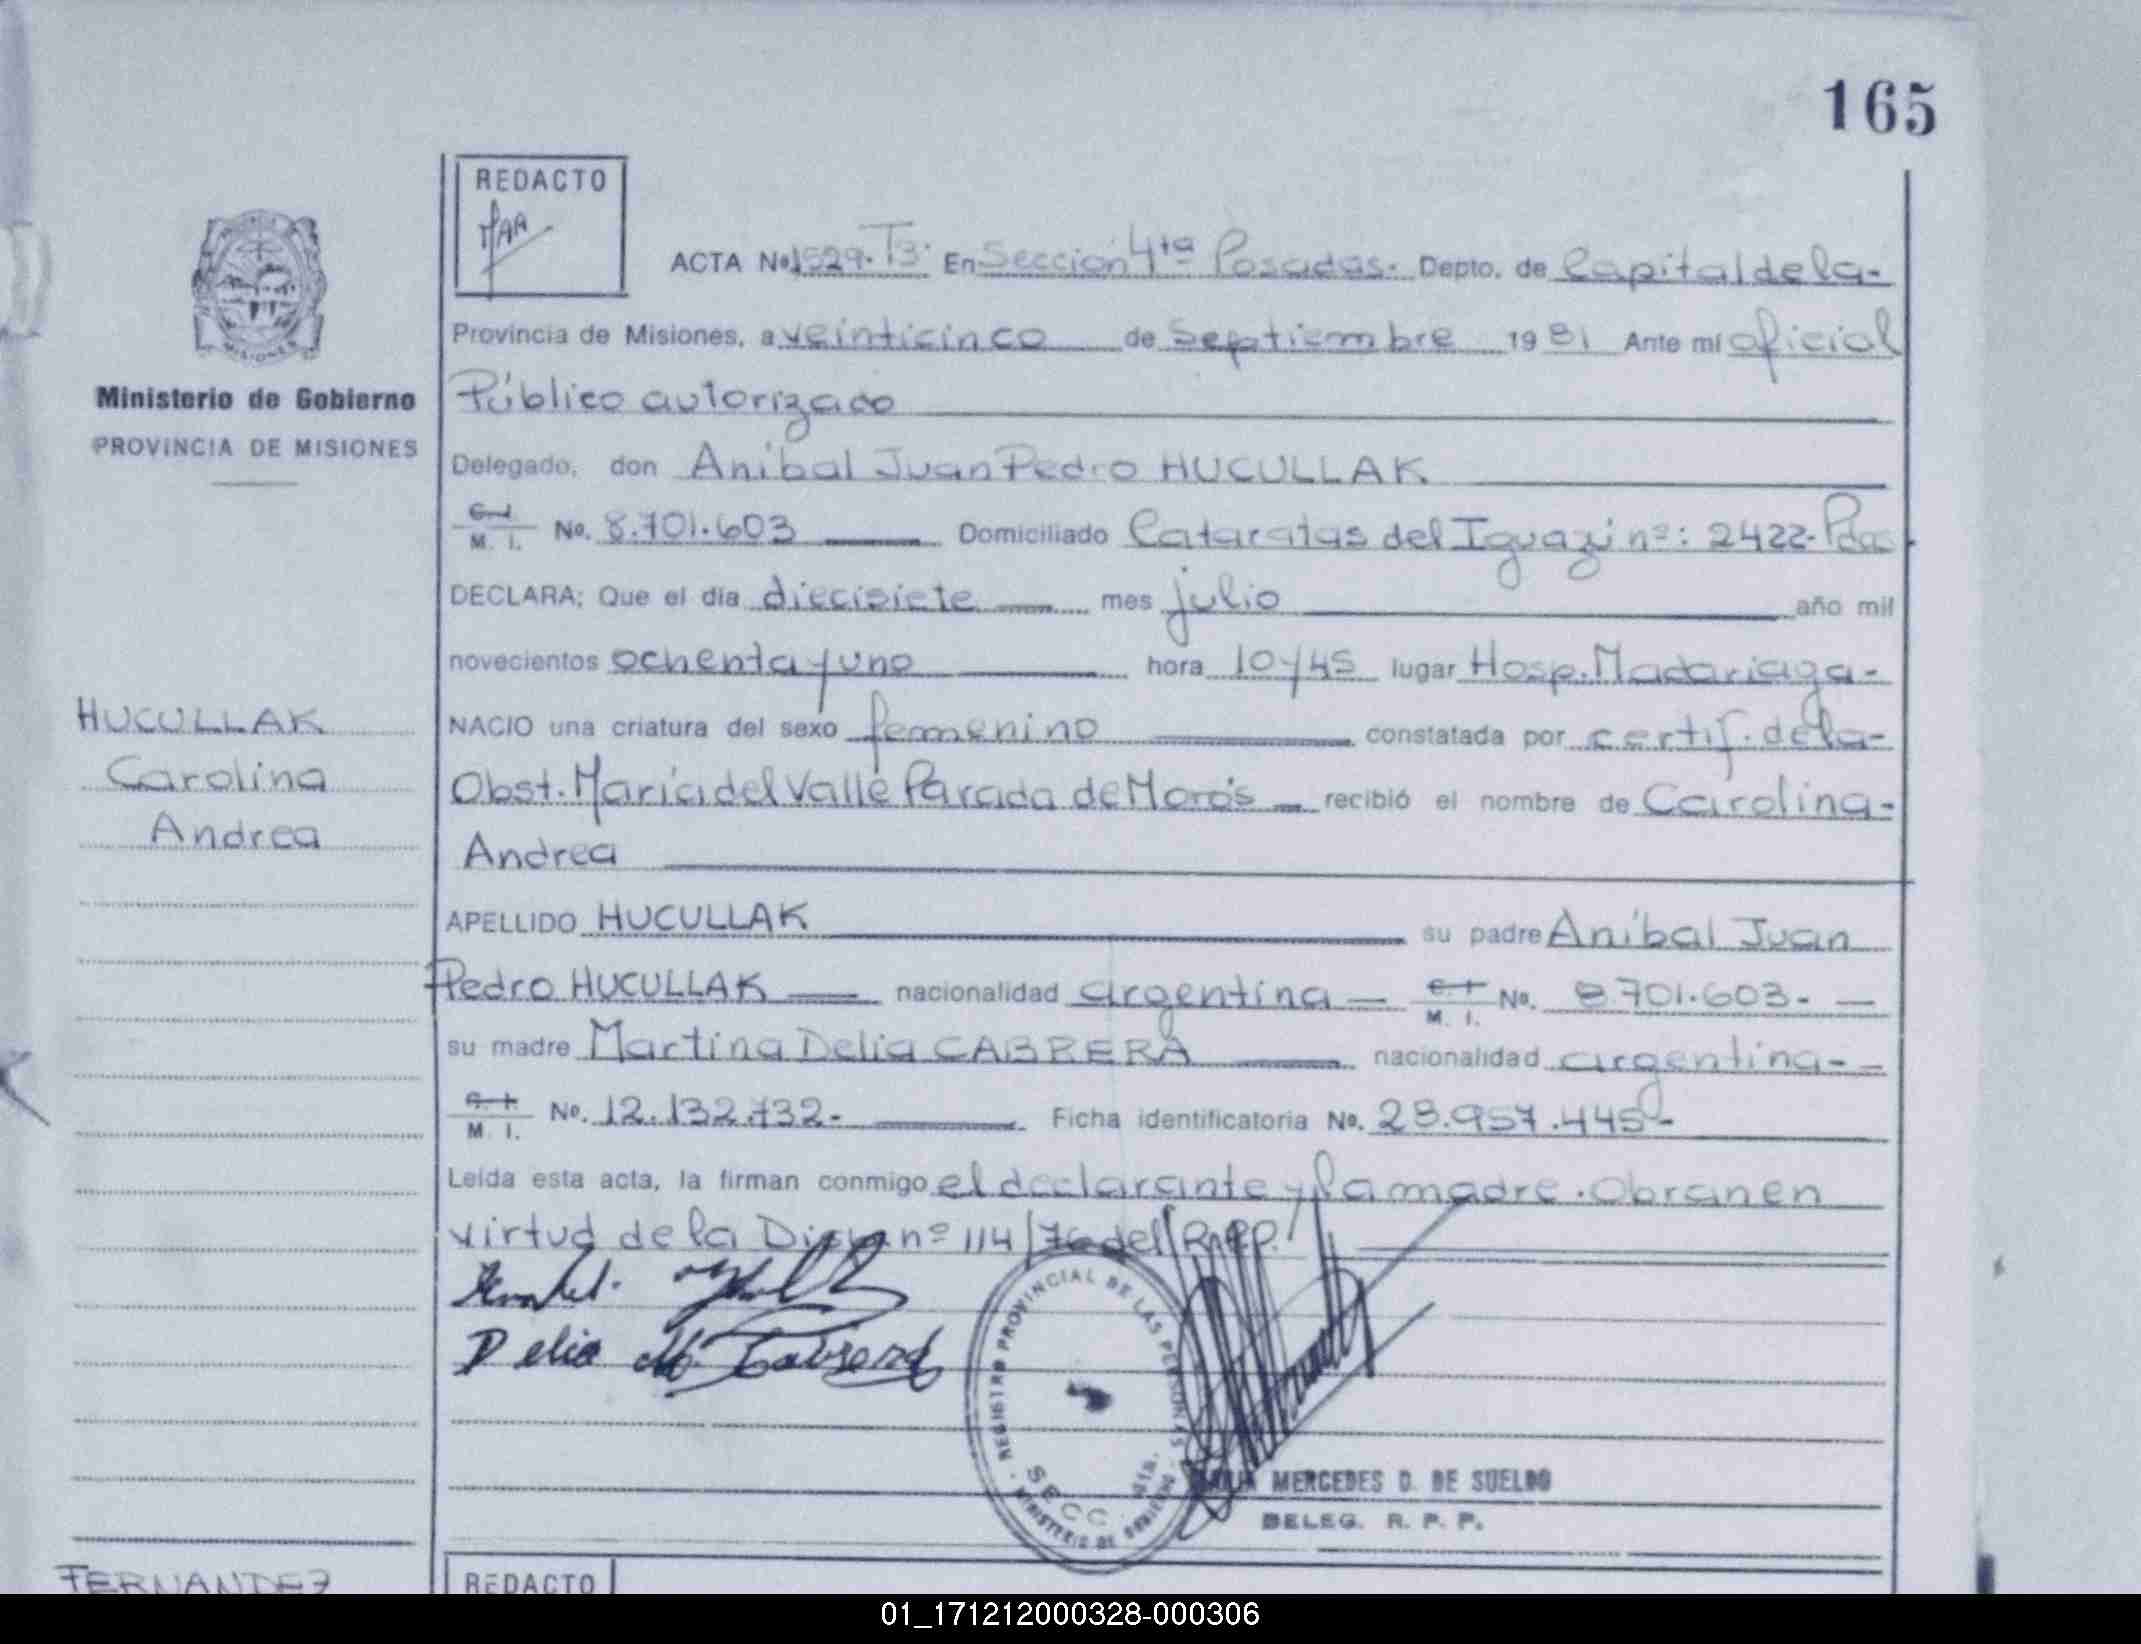 165
REDACTO
ACTA Nº 1529-T3- En Sección 4ta Posadas- Depto. de Capital de la-
Provincia de Misiones, a veinticinco de Septiembre 1981 Ante mí oficial
Público autorizado
Delegado, don Aníbal Juan Pedro HUCULLAK
C. I.
M. I. No. 8.701.603 Domiciliado Cataratas del Iguazú nº: 2422- Pdas
DECLARA; Que el día diecisiete mes julio año mil
novecientos ochenta y uno hora 10 y 45 lugar Hosp. Madariaga-
NACIO una criatura del sexo femenino constatada por certif. de la-
Obst. María del Valle Parada de recibió el nombre de Carolina-
Andrea
APELLIDO HUCULLAK su padre Aníbal Juan
Pedro HUCULLAK nacionalidad argentina C. I. M. I. No. 8.701.603-
su madre Martina Delia CABRERA nacionalidad argentina-
C. I.
M. I. No. 12.132.732- Ficha identificatoria No. 28.957.445-
Leída esta acta, la firman conmigo el declarante y la madre. Obran en
virtud de la nº 114/76 del
Delia M. Cabrera
REGISTRO PROVINCIAL DE LAS PERSONAS
SECC
MINISTERIO DE GOBIERNO
MERCEDES D. DE SUELDO
DELEG. R. P. P.
MISIONES
Ministerio de Gobierno
PROVINCIA DE MISIONES
HUCULLAK
Carolina
Andrea
FERNANDEZ
REDACTO
01_171212000328-000306